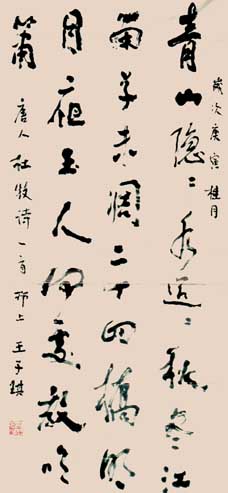 歲次庚寅桂月
青山隐〻水迢〻秋尽江
南草未凋二十四橋明
月夜玉人何處教吹
箫
唐人杜牧诗一首 邗上 王子琪